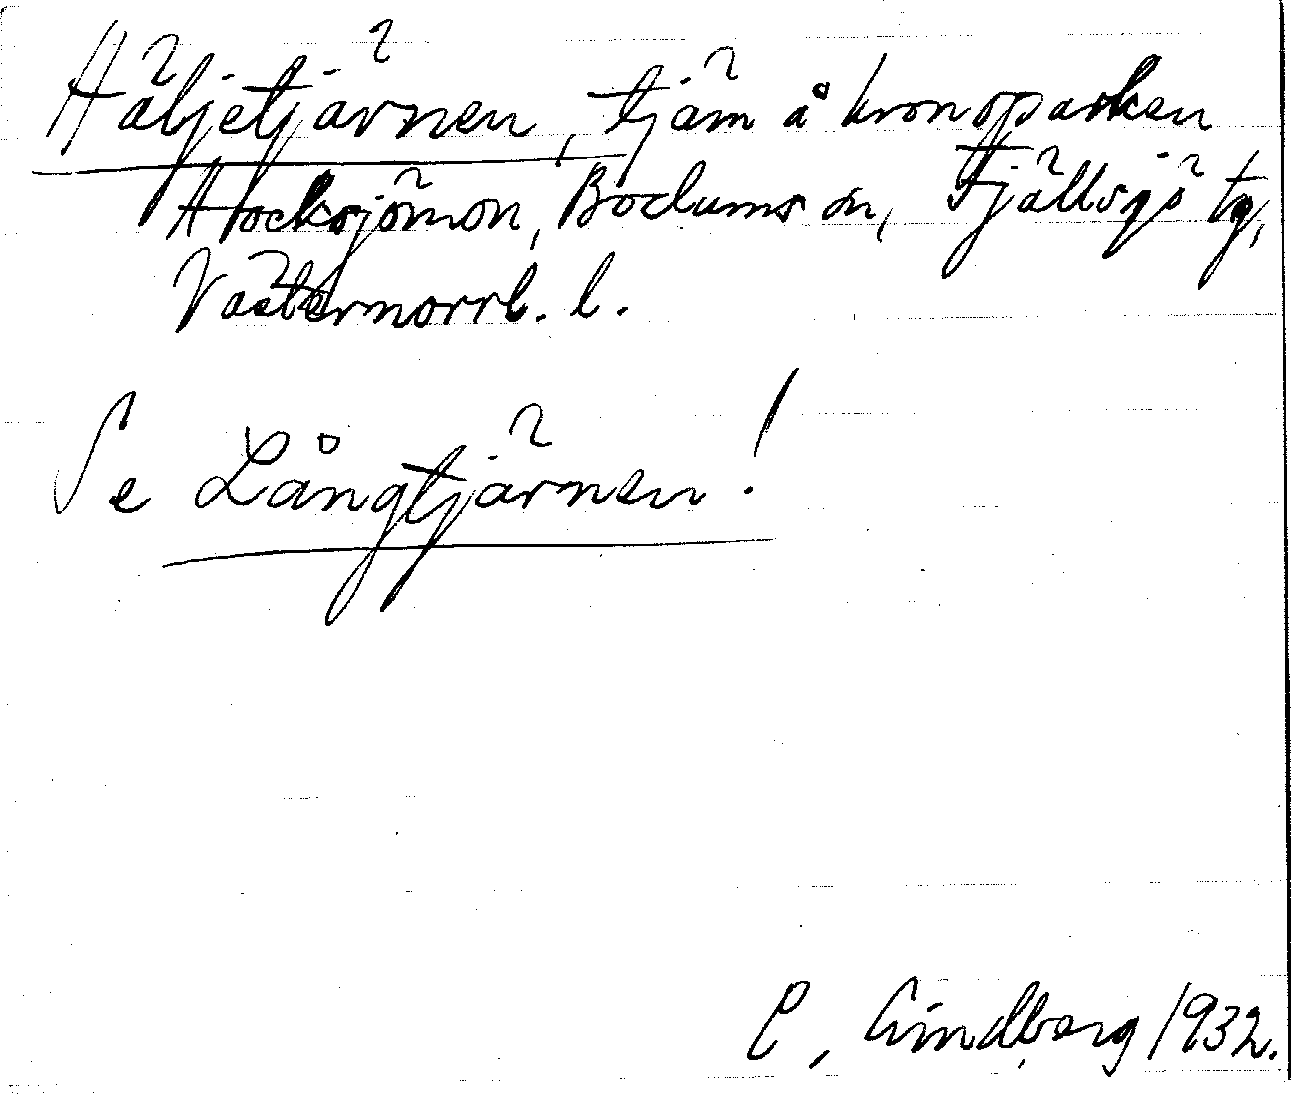 Häljetjärnen, tjärn å kronoparken
Hocksjömon, Bodums sn, Fjällsjö tg,
Västernorrl. l.
Se Långtjärnen!
C. Lindberg 1932.